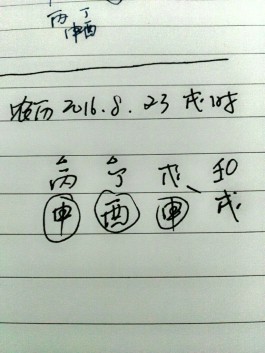 丙 丁
申酉
农历2016.8.23 戌时
丙 丁 戊
申 酉 申 戌